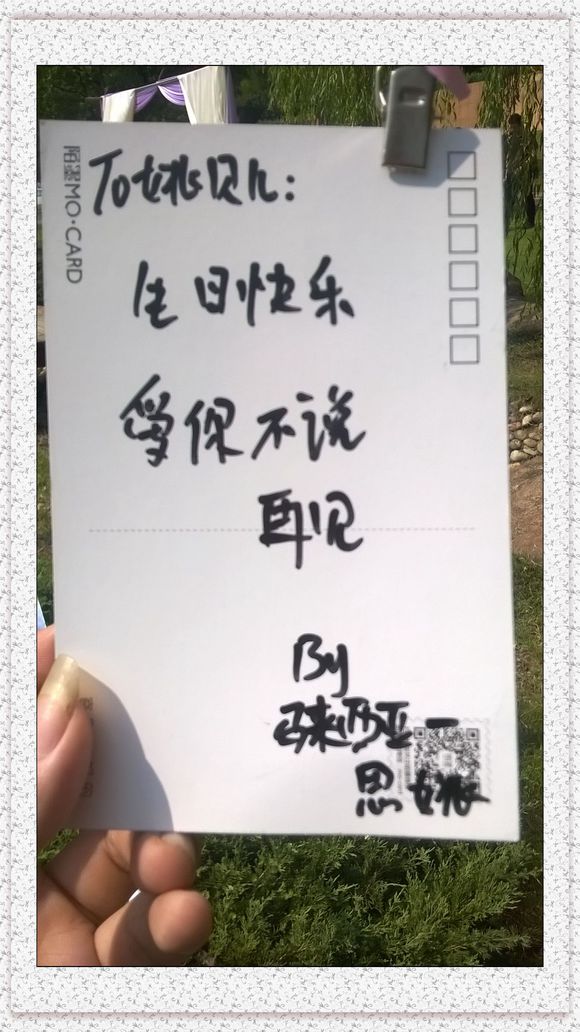 陌墨MO·CARD
To姚贝儿:
生日快乐
爱你不说
再见
By
马来西亚-
思姚